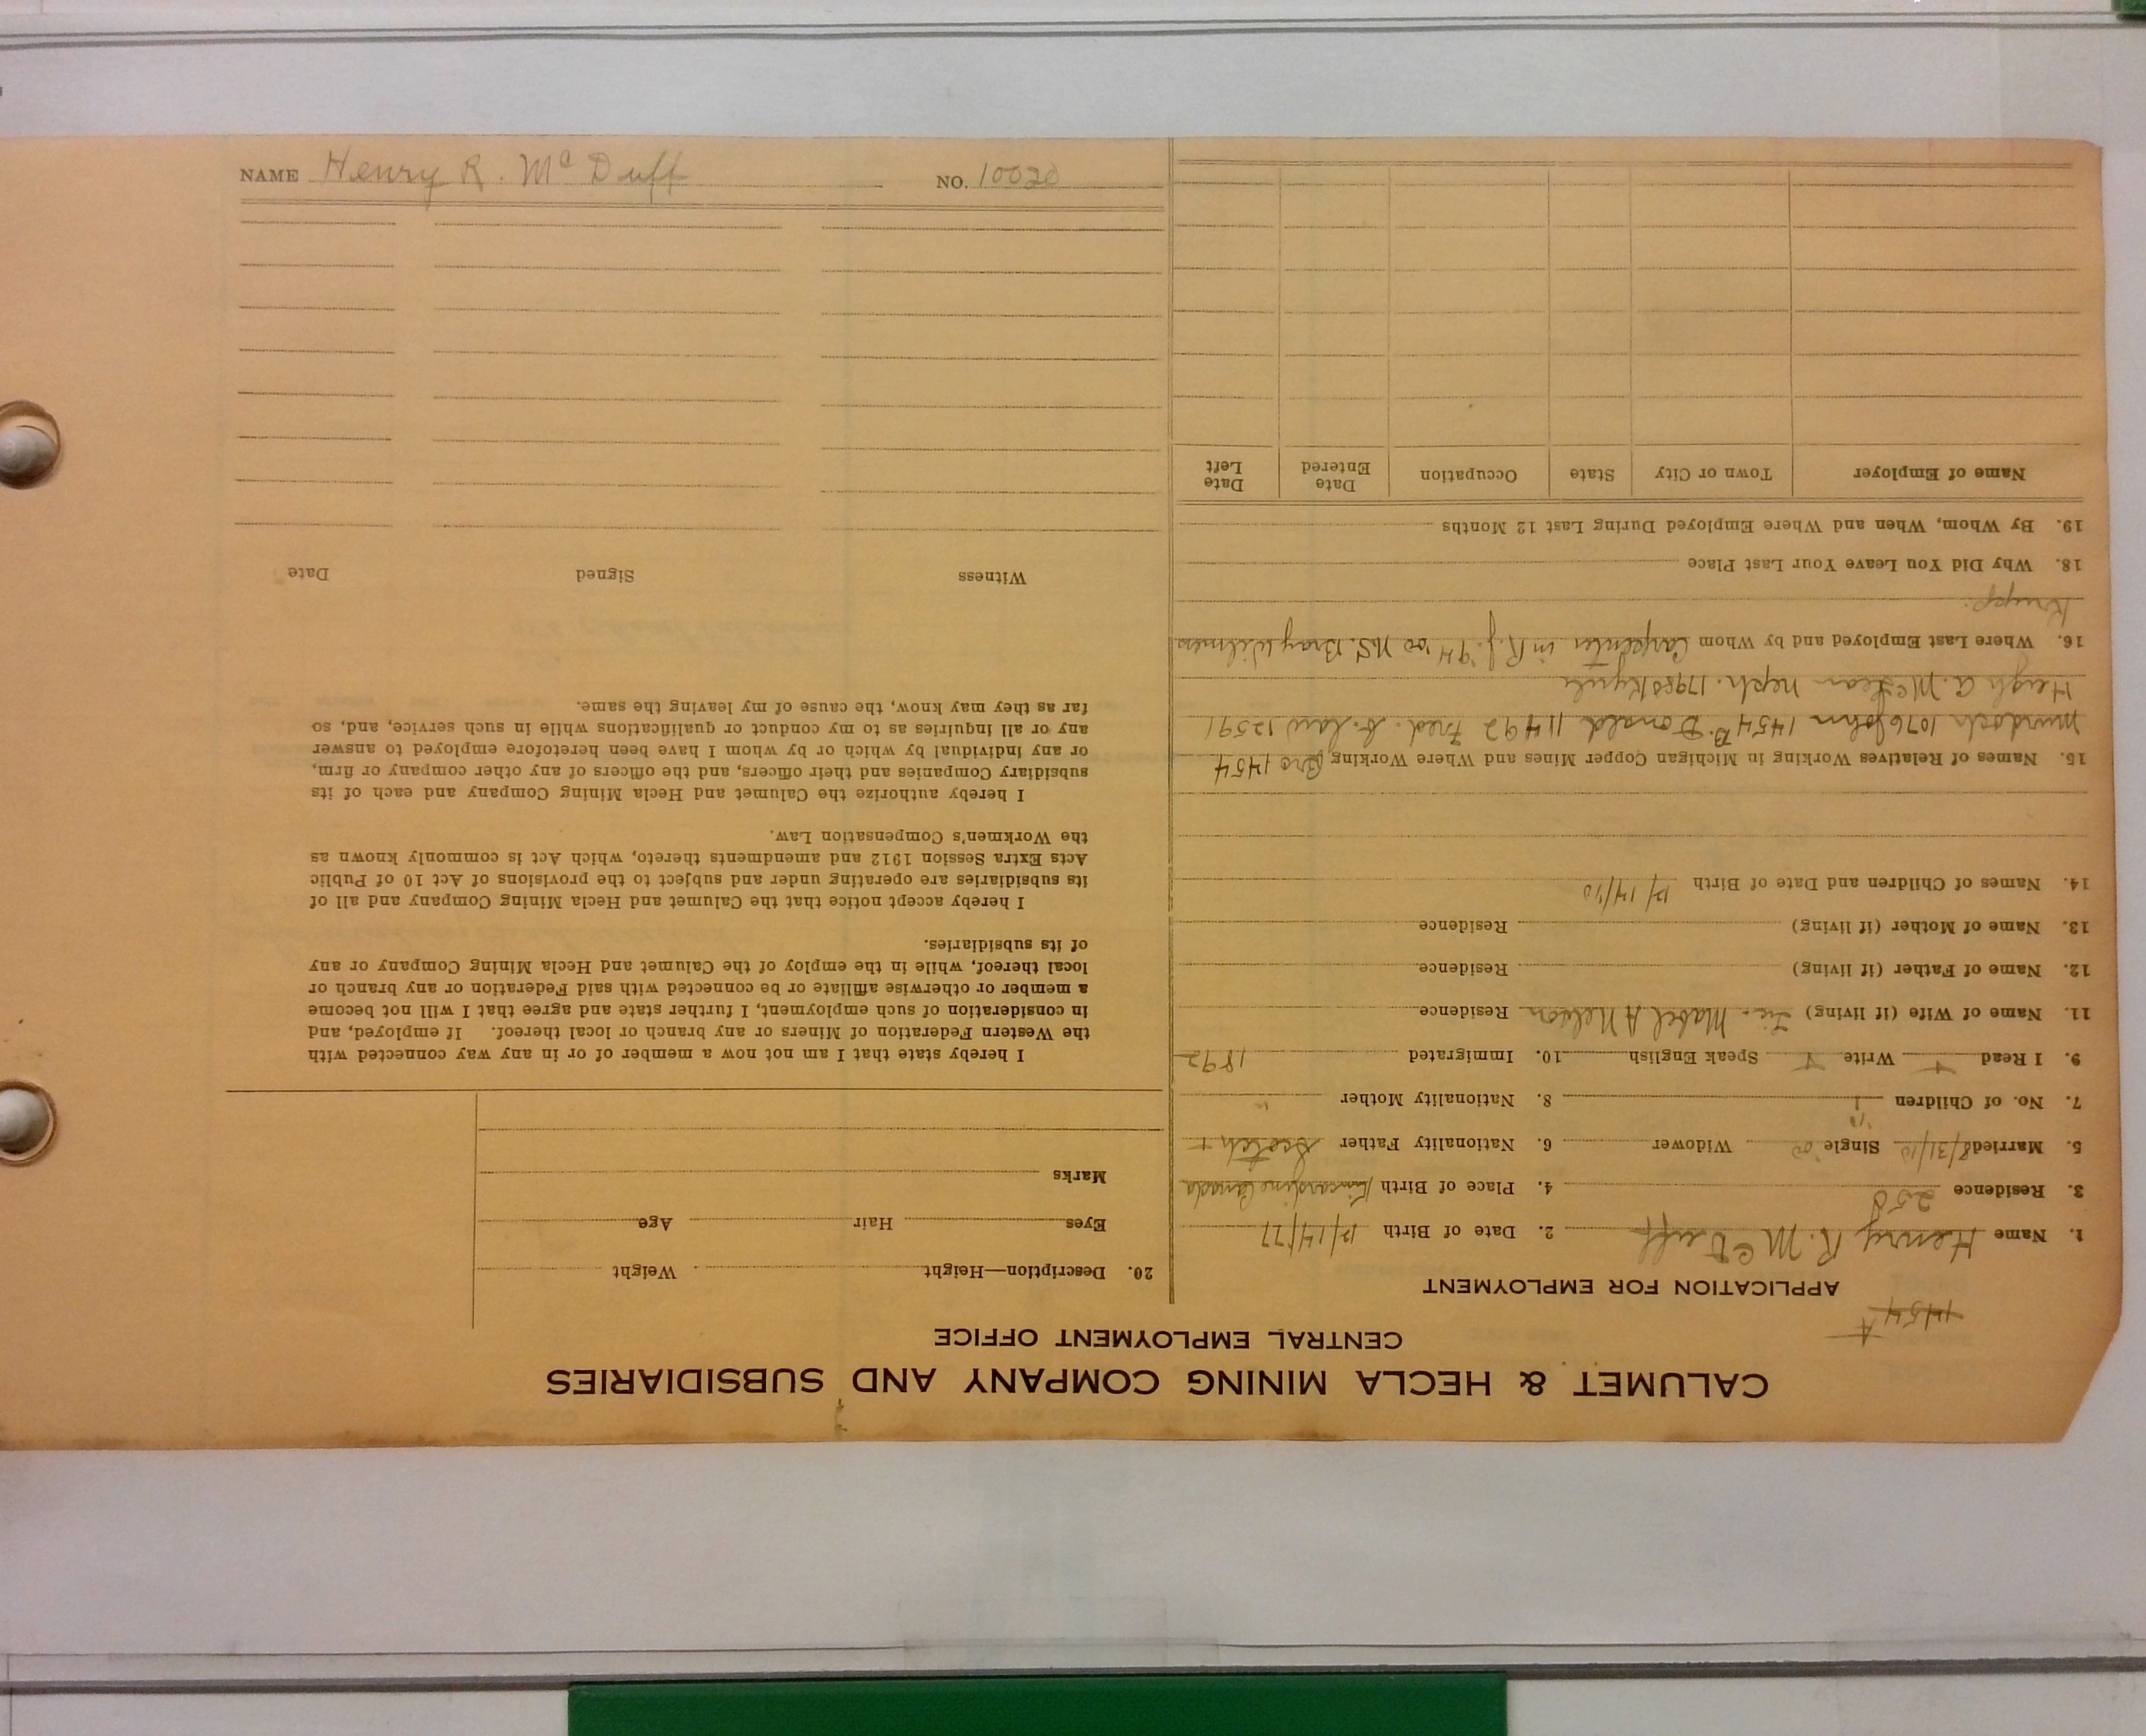 CALUMET & HECLA MINING COMPANY AND SUBSIDIARIES
CENTRAL EMPLOYMENT OFFICE
1454
A
APPLICATION FOR EMPLOYMENT
1. Name Henry R. McDuff 2. Date of Birth 12/14/77
3. Residence 250 4. Place of Birth Kincardine Canada
5. Married 8/31/10 Single Widower 6. Nationality Father Scotch +
7. No. of Children 1 8. Nationality Mother "
9. I Read + Write + Speak English 10. Immigrated 1892
11. Name of Wife (if living) Mabel A Nelson Residence
12. Name of Father (if living) Residence
13. Name of Mother (if living) Residence
14. Names of Children and Date of Birth 12/14/10
15. Names of Relatives Working in Michigan Copper Mines and Where Working Bro 1454
Murdoch 1076 John 1454 B. Donald 11492 Fred. b. law 12591
Hugh A. McLean neph. 17958
16. Where Last Employed and by Whom Carpenter in R.J. '94 '00 N.S. Bray
18. Why Did You Leave Your Last Place
19. By Whom, When and Where Employed During Last 12 Months
Name of Employer Town or City State Occupation Date Entered Date Left
20. Description—Height Weight
Eyes Hair Age
Marks
I hereby state that I am not now a member of or in any way connected with
the Western Federation of Miners or any branch or local thereof. If employed, and
in consideration of such employment, I further state and agree that I will not become
a member or otherwise affiliate or be connected with said Federation or any branch or
local thereof, while in the employ of the Calumet and Hecla Mining Company or any
of its subsidiaries.
I hereby accept notice that the Calumet and Hecla Mining Company and all of
its subsidiaries are operating under and subject to the provisions of Act 10 of Public
Acts Extra Session 1912 and amendments thereto, which Act is commonly known as
the Workmen's Compensation Law.
I hereby authorize the Calumet and Hecla Mining Company and each of its
subsidiary Companies and their officers, and the officers of any other company or firm,
or any individual by which or by whom I have been heretofore employed to answer
any or all inquiries as to my conduct or qualifications while in such service, and, so
far as they may know, the cause of my leaving the same.
Witness Signed Date
NAME Henry R. McDuff NO. 10020